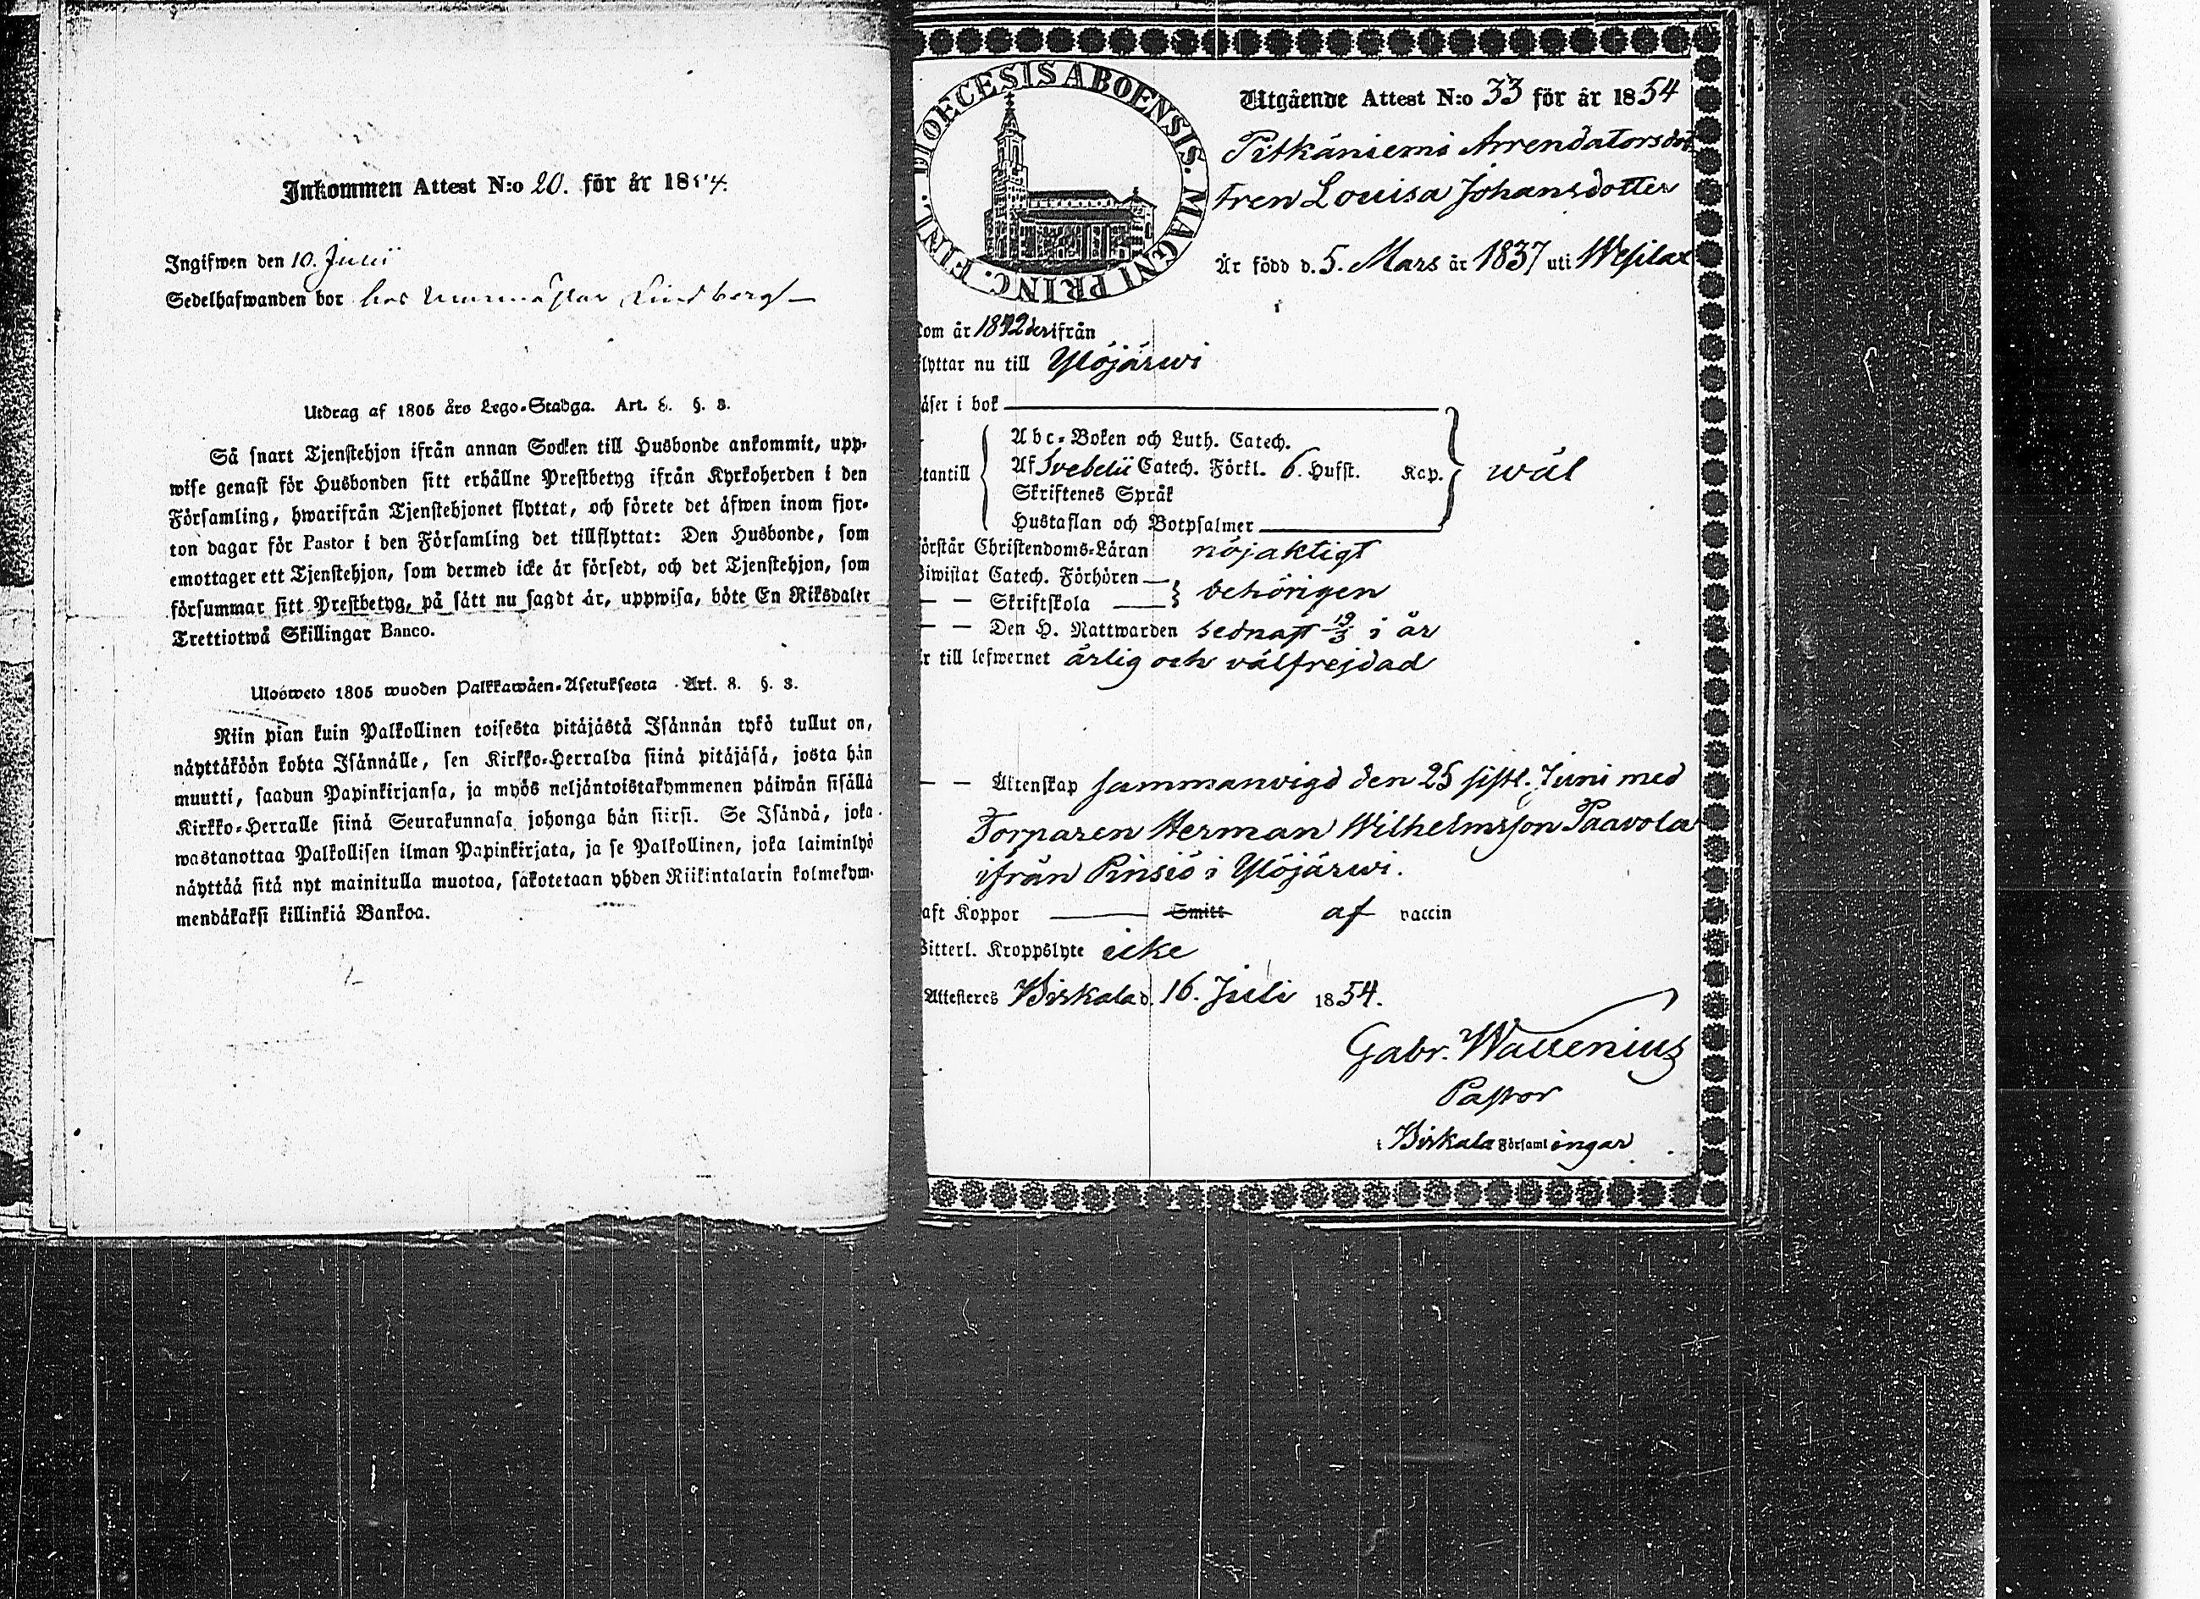 Inkommen Attest N:o 20. för år 1854.
Ingifwen den 10. Junii
Sedelhafwanden bor hos Lindberg
Utdrag af 1805 års Lego-Stadga. Art. 8. §. 3.
Så snart Tjenstehjon ifrån annan Socken till Husbonde ankommit, upp-
wise genast för Husbonden sitt erhållne Prestbetyg ifrån Kyrkoherden i den
Församling, hwarifrån Tjenstehjonet flyttat, och förete det äfwen inom fjor-
ton dagar för Pastor i den Församling det tillflyttat: Den Husbonde, som
emottager ett Tjenstehjon, som dermed icke är försedt, och det Tjenstehjon, som
försummar sitt Prestbetyg, på sätt nu sagdt är, uppwisa, böte En Riksdaler
Trettiotwå Skillingar Banco.
Ulosweto 1805 wuoden Palkkawäen-Asetuksesta Art. 8. §. 3.
Niin pian kuin Palkollinen toisesta pitäjästä Isännän tykö tullut on,
näyttäköön kohta Isännälle, sen Kirkko-Herralda siinä pitäjäsä, josta hän
muutti, saadun Papinkirjansa, ja myös neljäntoistakymmenen päiwän sisällä
Kirkko-Herralle siinä Seurakunnasa johonga hän siirsi. Se Isändä, joka
wastanottaa Palkollisen ilman Papinkirjata, ja se Palkollinen, joka laiminlyö
näyttää sitä nyt mainitulla muotoa, sakotetaan yhden Riikintalarin kolmekym-
mendäkaksi killinkiä Bankoa.
DIOECESIS ABOENSIS. MAGNI PRINC. FINL.
Utgående Attest N:o 33 för år 1854
Pitkäniemi Arrendatorsdot
tren Louisa Johansdotter
Är född d. 5. Mars år 1837 uti Wesilax
kom år 1842 derifrån
flyttar nu till Ylöjärwi
läser i bok
Abc-Boken och Luth. Catech.
utantill Af Svebelii Catech. Förkl. 6. Hufst. Kap. wäl
Skriftenes Språk
Hustaflan och Botpsalmer
förstår Christendoms-Läran nöjaktigt
Biwistat Catech. Förhören
— — Skriftskola behörigen
— — Den H. Nattwarden sednast 19/3 i år
är till lefwernet ärlig och välfrejdad
— — Äktenskap sammanvigd den 25 sistl. Juni med
Torparen Herman Wilhelmsson Paavola
ifrån Pinsiö i Ylöjärwi.
haft Koppor Smitt af vaccin
Witterl. Kroppslyte icke
Attesteres Birkala d. 16. Juli 1854.
Gabr. Wallenius
Pastor
i Birkala Församlingar